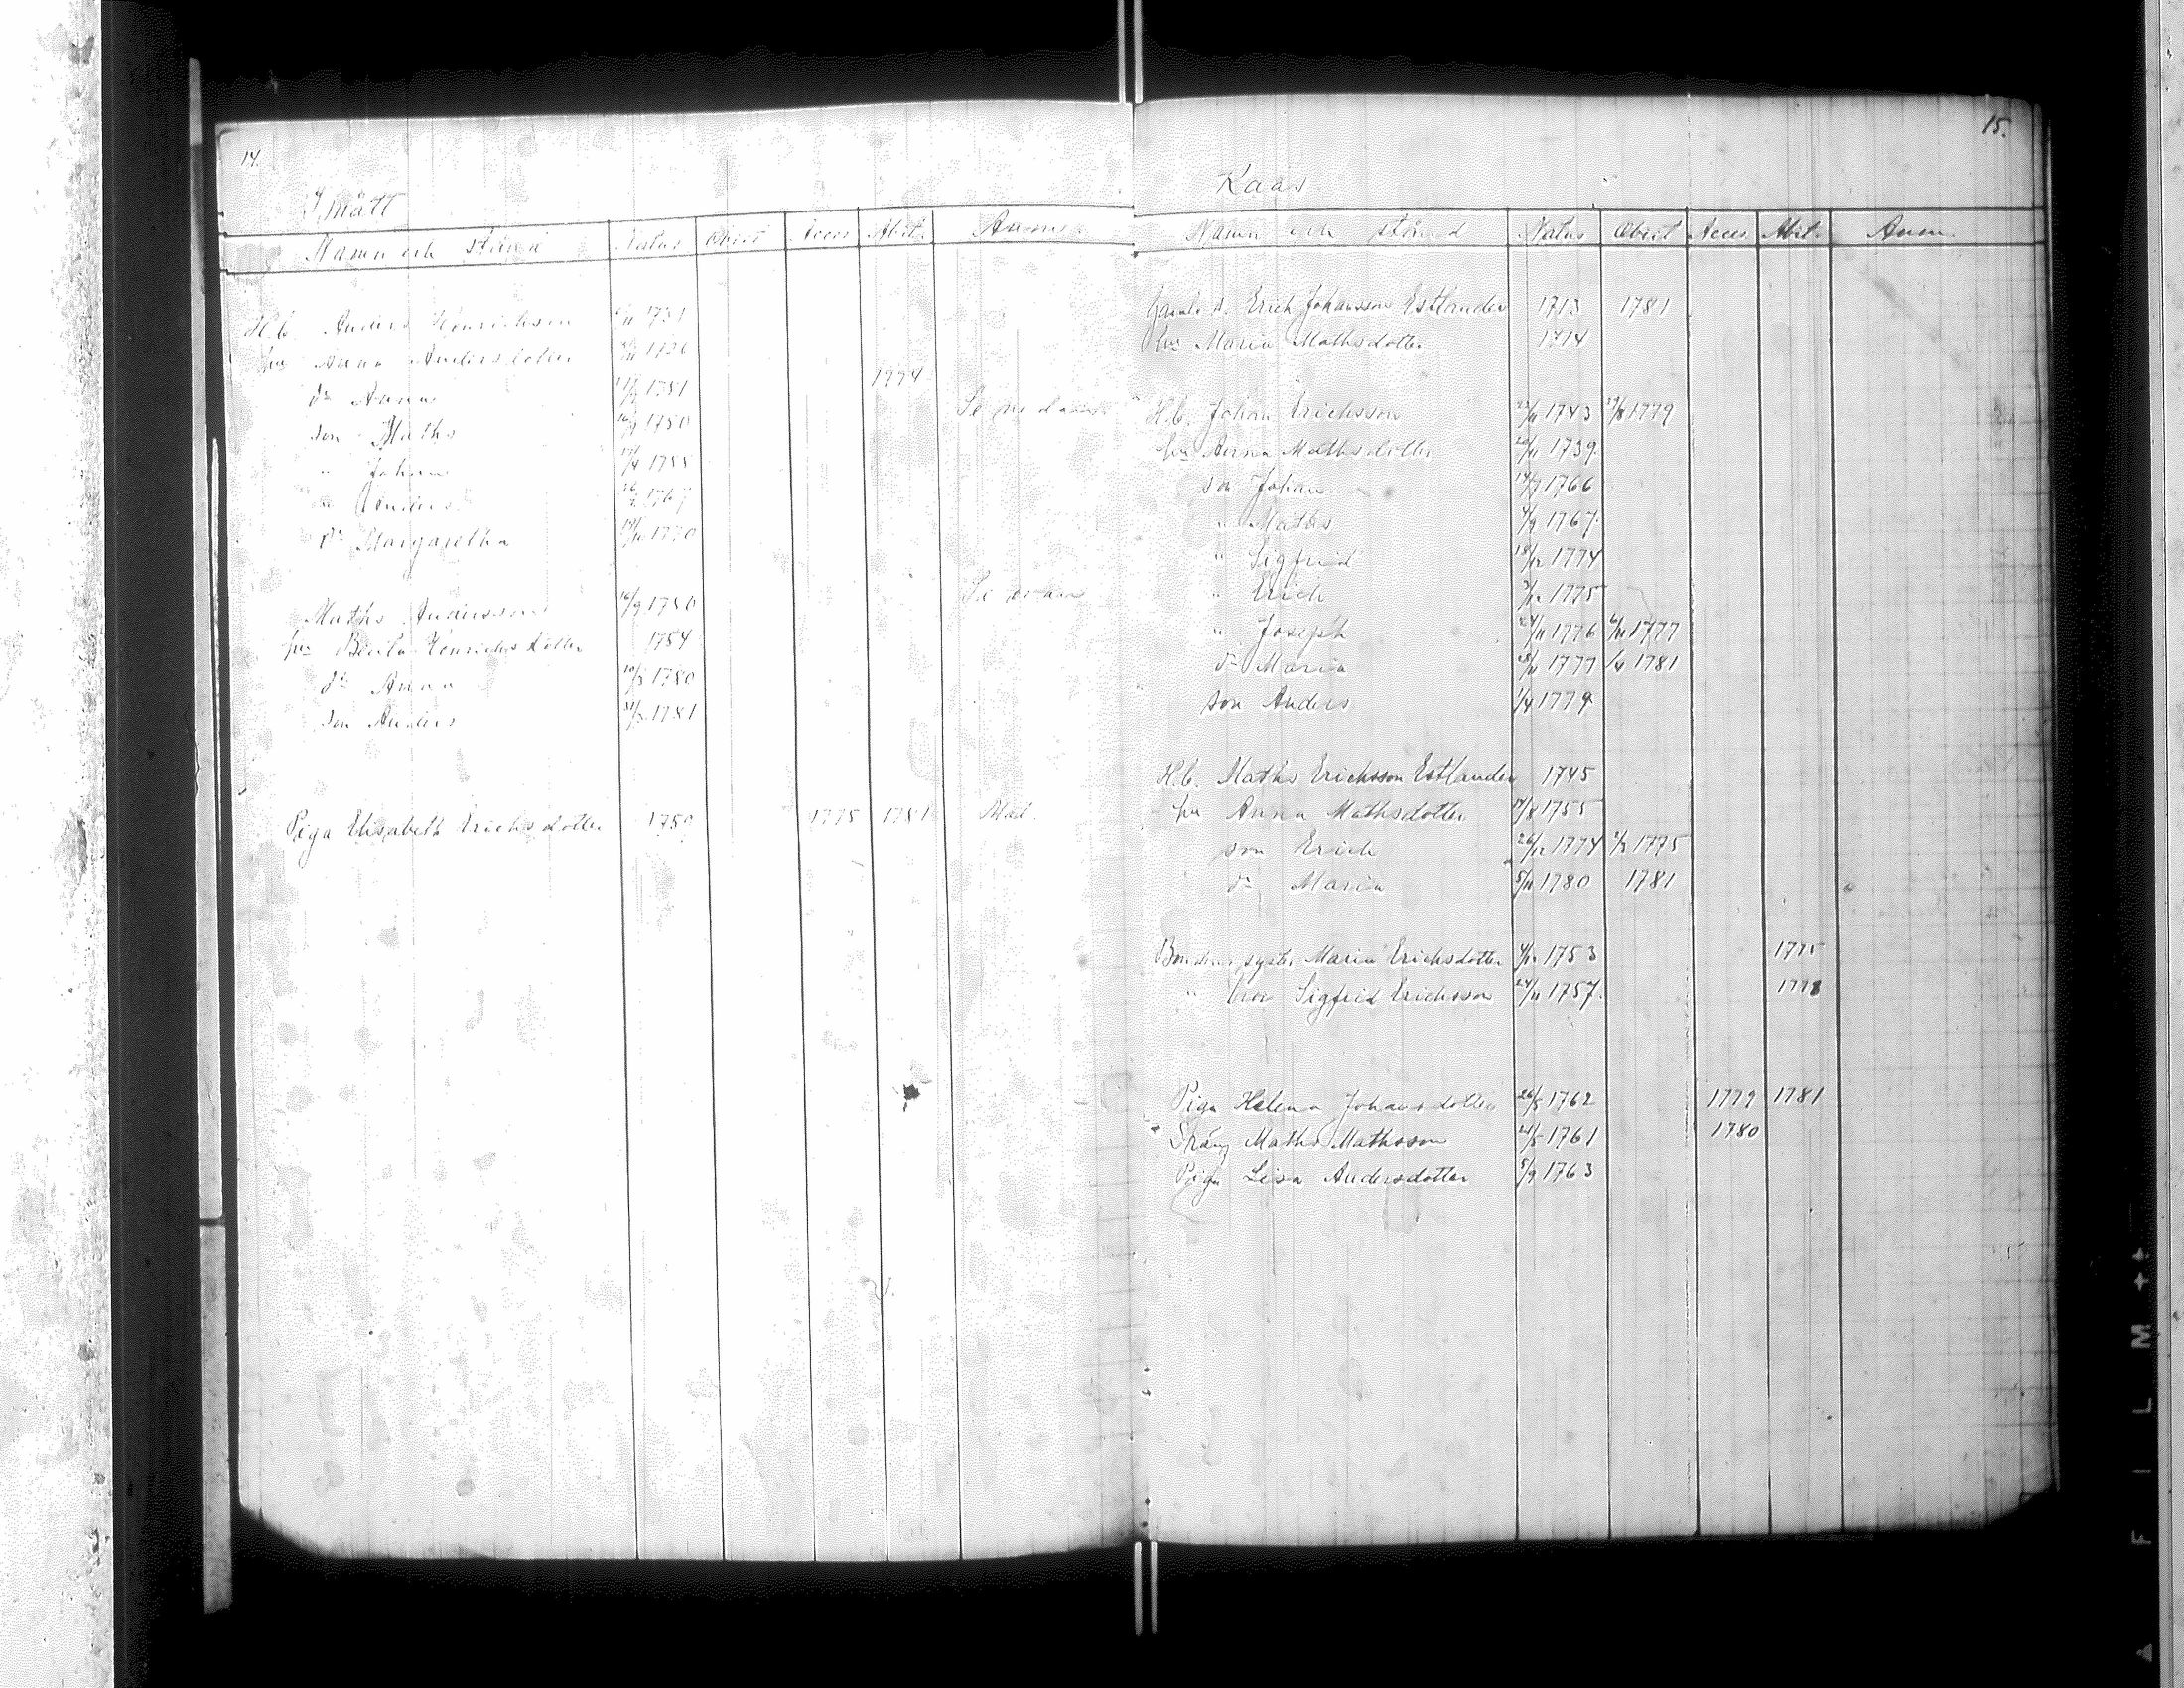 14.
Smått
Namn och stånd Natus Obiit Acces Abit. Anm.
H.b. Anders Henrichson 1731
hu Anna Andersdotter 1726
dr Anna 1751 1774
son Maths 16/9 1750 Se nedan
" Johan 1755
" Anders 1767
dr Margaretha 1770
Maths Andersson 16/9 1750 Se ofvan
hu Beata Henrichsdotter 1754
dr Anna 1780
son Anders 1781
Piga Elisabeth Erichsdotter 1750 1775 1781
15.
Kaas
Namn och stånd Natus Obiit Acces Abit. Anm.
Gamle b. Erich Johansson Estlander 1713 1781
hu Maria Mathsdotter 1714
H.b. Johan Erichsson 23/11 1743 29/8 1779
hu Anna Mathsdotter 20/11 1739
son Johan 14/7 1766
" Maths 4/9 1767.
" Sigfrid 18/12 1774
" Erich 1775
" Joseph 24/11 1776 6/11 1777
dr Maria 28/11 1777 1781
son Anders 1/4 1779
H.b. Maths Erichsson Estlander 1745
hu Anna Mathsdotter 14/8 1755
son Erich 26/12 1774 1775
dr Maria 5/11 1780 1781
Bondens syster Maria Erichsdotter 4/12 1753 1775
" bror Sigfrid Erichsson 24/11 1757. 1778
Piga Helena Johansdotter 26/5 1762 1779 1781
Dräng Maths Mathsson 21/5 1761 1780
Piga Lisa Andersdotter 5/9 1763
FILM